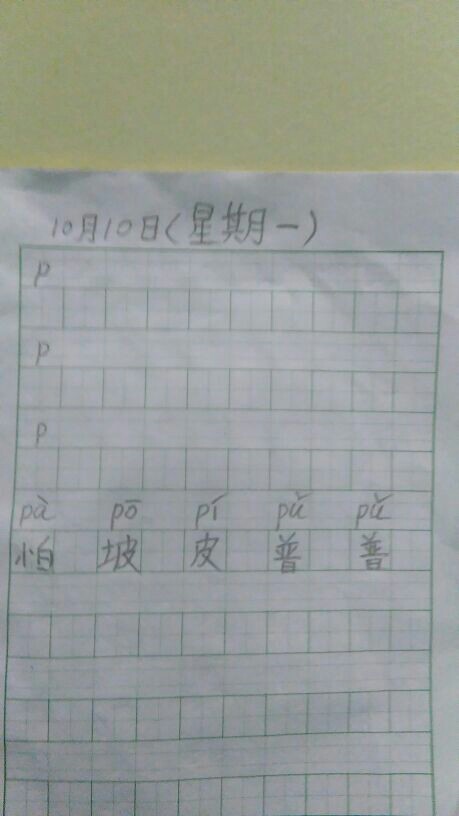 10月10日(星期一)
p
p
p
pà pō pí pǔ pǔ
怕 坡 皮 普 普